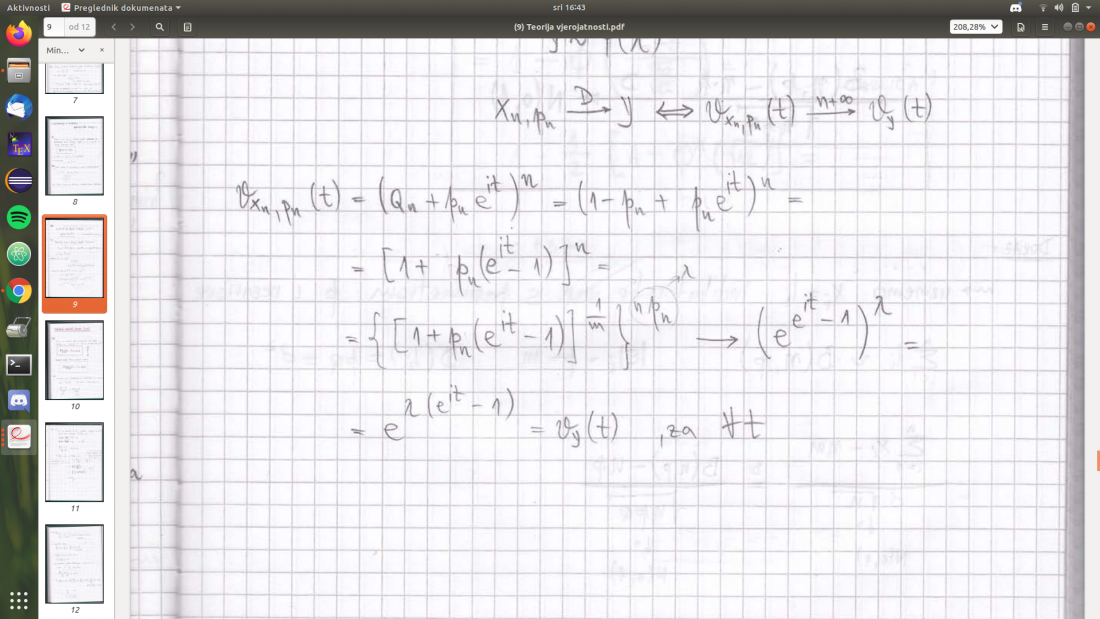 Aktivnosti Preglednik dokumenata sri 16:43
9 od 12 (9) Teorija vjerojatnosti.pdf 208,28%
Min...
7
8
9
10
11
12
X_{n,p_n} \xrightarrow{D} y ⟺ ϑ_{x_n,p_n}(t) \xrightarrow{n→∞} ϑ_y(t)
ϑ_{x_n,p_n}(t) = (Q_n + p_n e^{it})^n = (1 - p_n + p_n e^{it})^n =
= [1 + p_n(e^{it} - 1)]^n = λ
= {[1 + p_n(e^{it} - 1)]^{\frac{1}{m}}}^{n p_n} → (e^{e^{it} - 1})^λ =
= e^{λ(e^{it} - 1)} = ϑ_y(t) , za ∀t